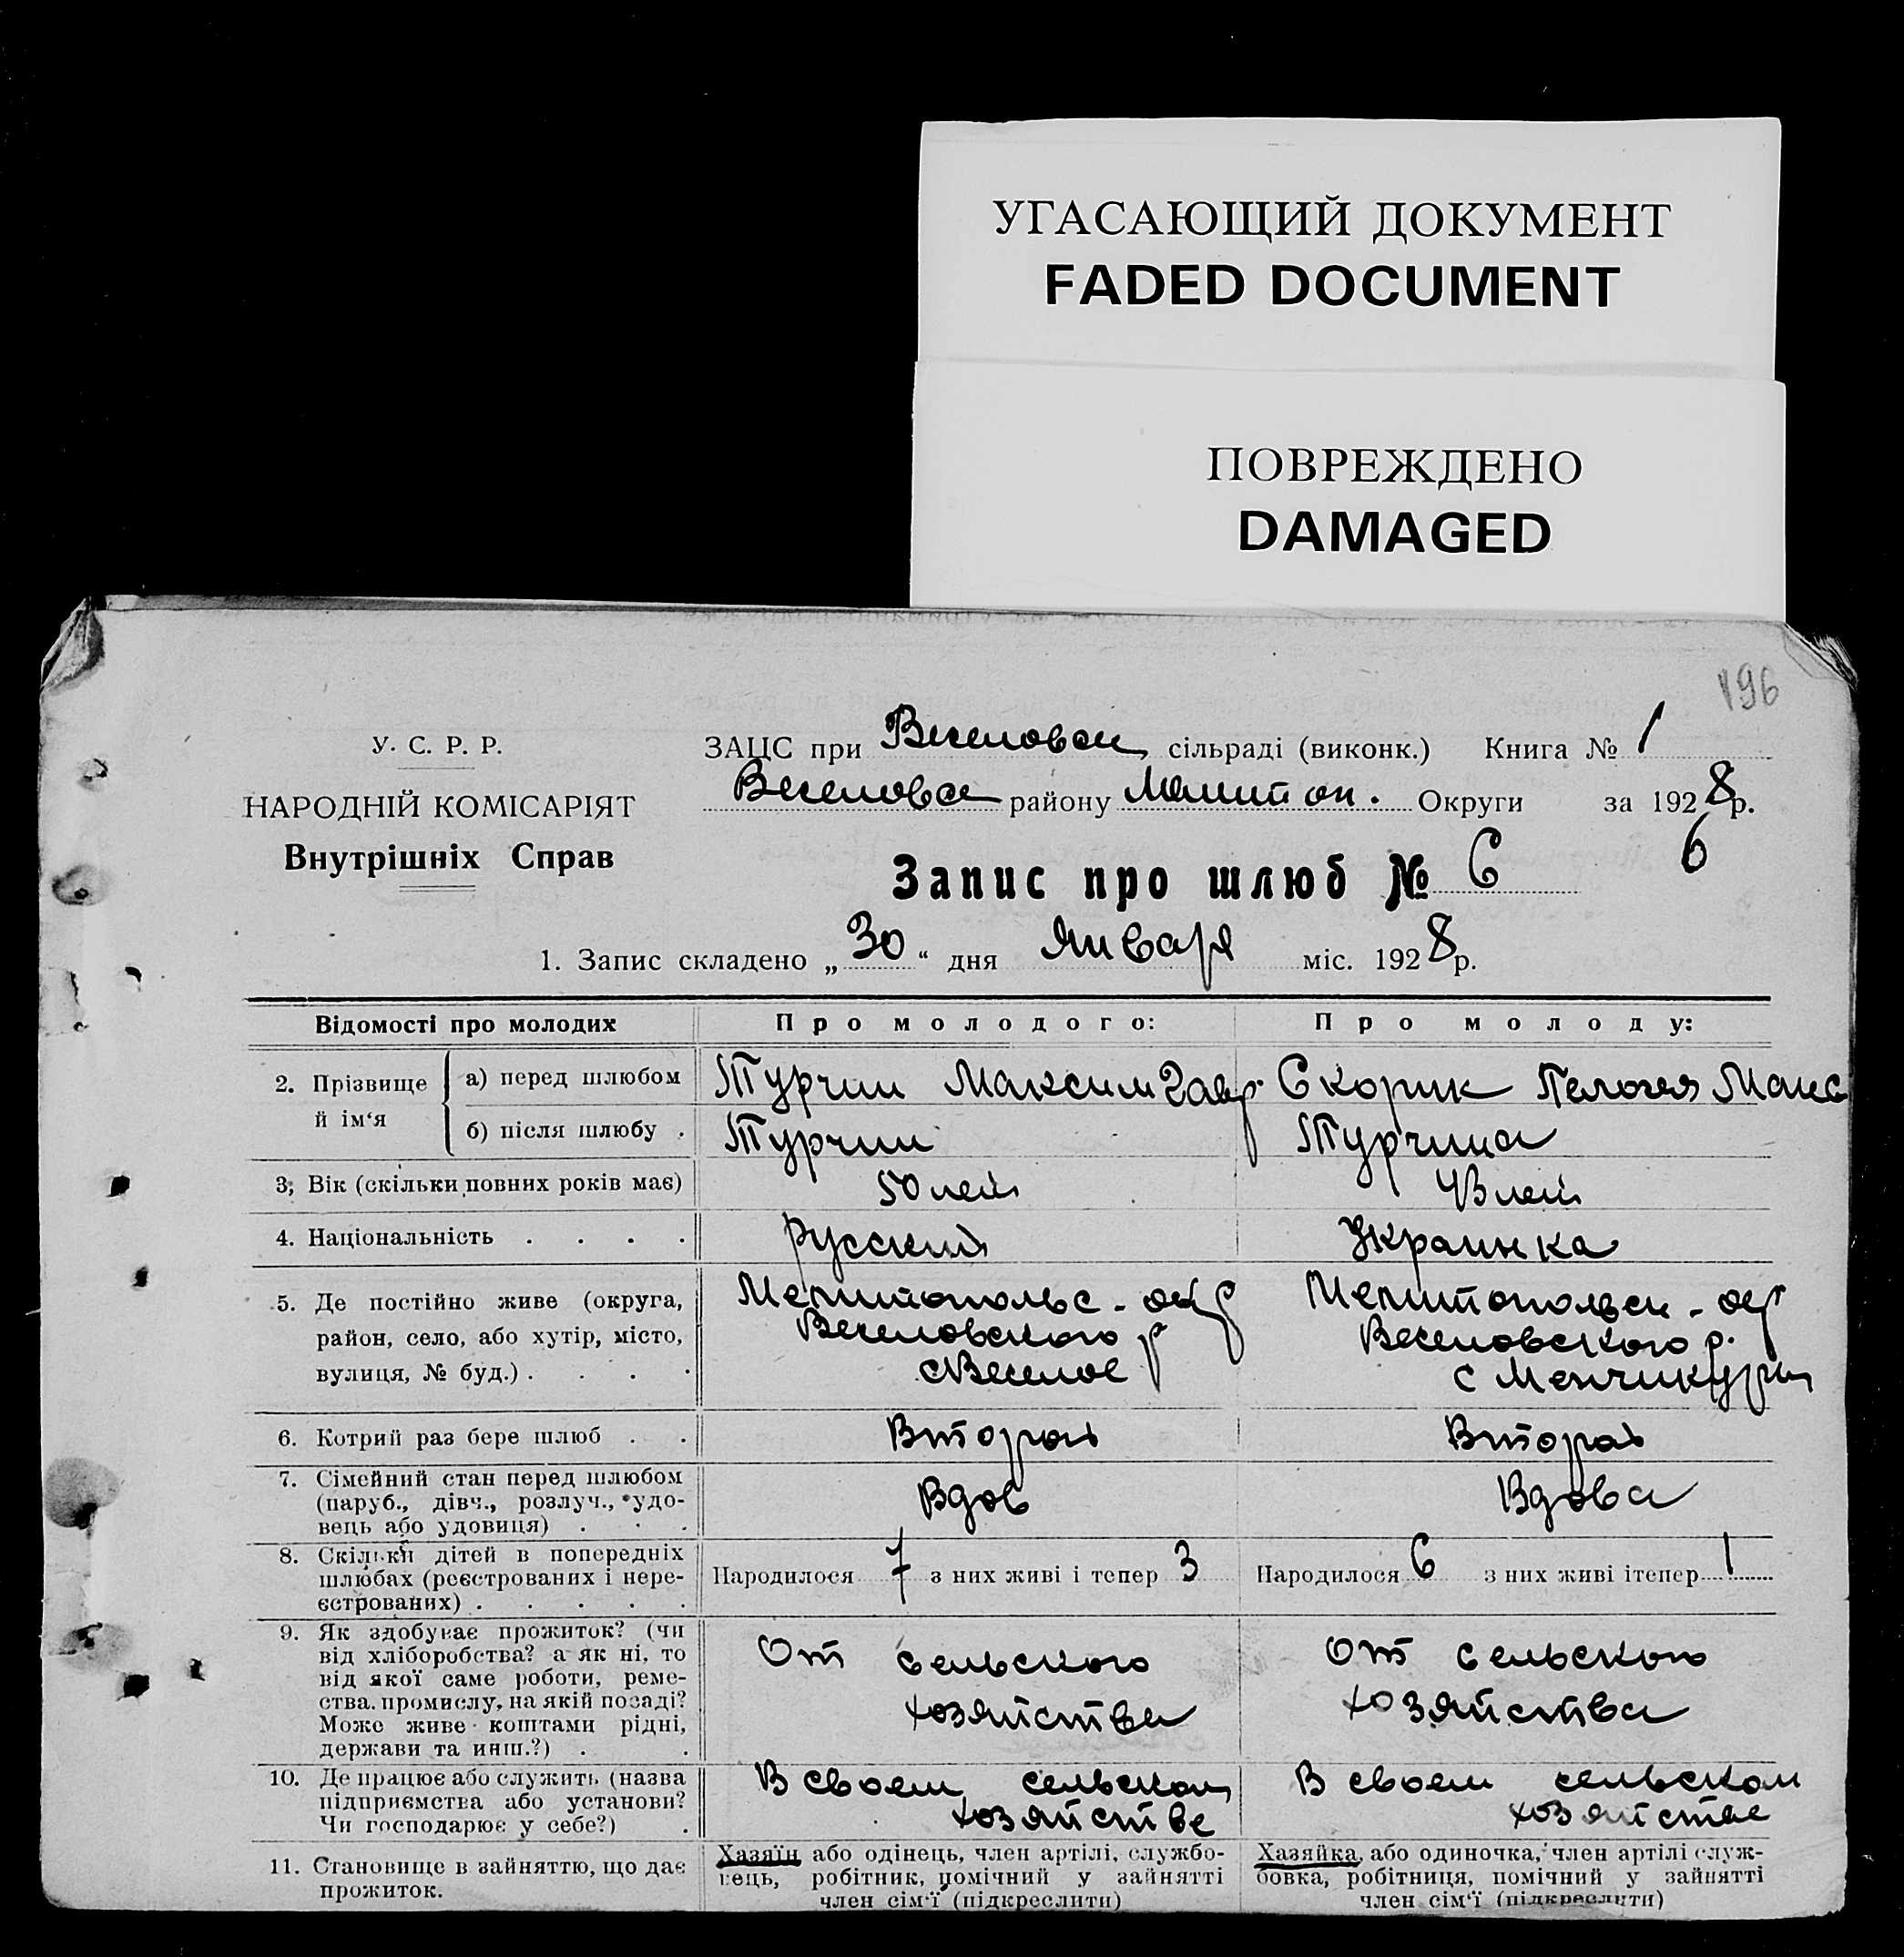 УГАСАЮЩИЙ ДОКУМЕНТ
FADED DOCUMENT
ПОВРЕЖДЕНО
DAMAGED
196
У. С. Р. Р.
НАРОДНІЙ КОМІСАРІЯТ
Внутрішніх Справ
ЗАЦС при Веселовск сільраді (виконк.) Книга № 1
Веселовск району Мелитоп. Округи за 1928 р.
Запис про шлюб № 6 6
1. Запис складено „30“ дня Января міс. 1928 р.
Відомості про молодих Про молодого: Про молоду:
2. Прізвище й ім‘я
а) перед шлюбом Турчин Максим Гавр. Скорик Пелогея Макс
б) після шлюбу . Турчин Турчина
3, Вік (скільки повних років має) 50 лет 43 лет
4. Національність . . . . русский Украинка
5. Де постійно живе (округа, Мелитопольс - окр Мелитопольск - окр
район, село, або хутір, місто, Веселовского р Веселовского р.
вулиця, № буд.) . . . . с Веселое с Менчикуры
6. Котрий раз бере шлюб . . Второй Второй
7. Сімейний стан перед шлюбом
(паруб., дівч., розлуч., удо- Вдов Вдова
вець або удовиця) . . .
8. Скільки дітей в попередніх
шлюбах (реєстрованих і нере- Народилося 7 з них живі і тепер 3 Народилося 6 з них живі ітепер 1
єстрованих) . . . . .
9. Як здобуває прожиток? (чи
від хліборобства? а як ні, то От сельского От сельского
від якої саме роботи, реме-
ства, промислу, на якій посаді? хозяйства хозяйства
Може живе коштами рідні,
держави та инш.?) . .
10. Де працює або служить (назва В своем сельском В своем сельском
підприємства або установи? хозяйстве хозяйстве
Чи господарює у себе?) .
11. Становище в зайняттю, що дає
прожиток.
Хазяїн або одінець, член артілі, службо-
вець, робітник, помічний у зайнятті
член сім‘ї (підкреслити)
Хазяйка, або одиночка, член артілі служ-
бовка, робітниця, помічний у зайнятті
член сім‘ї (підкреслити)